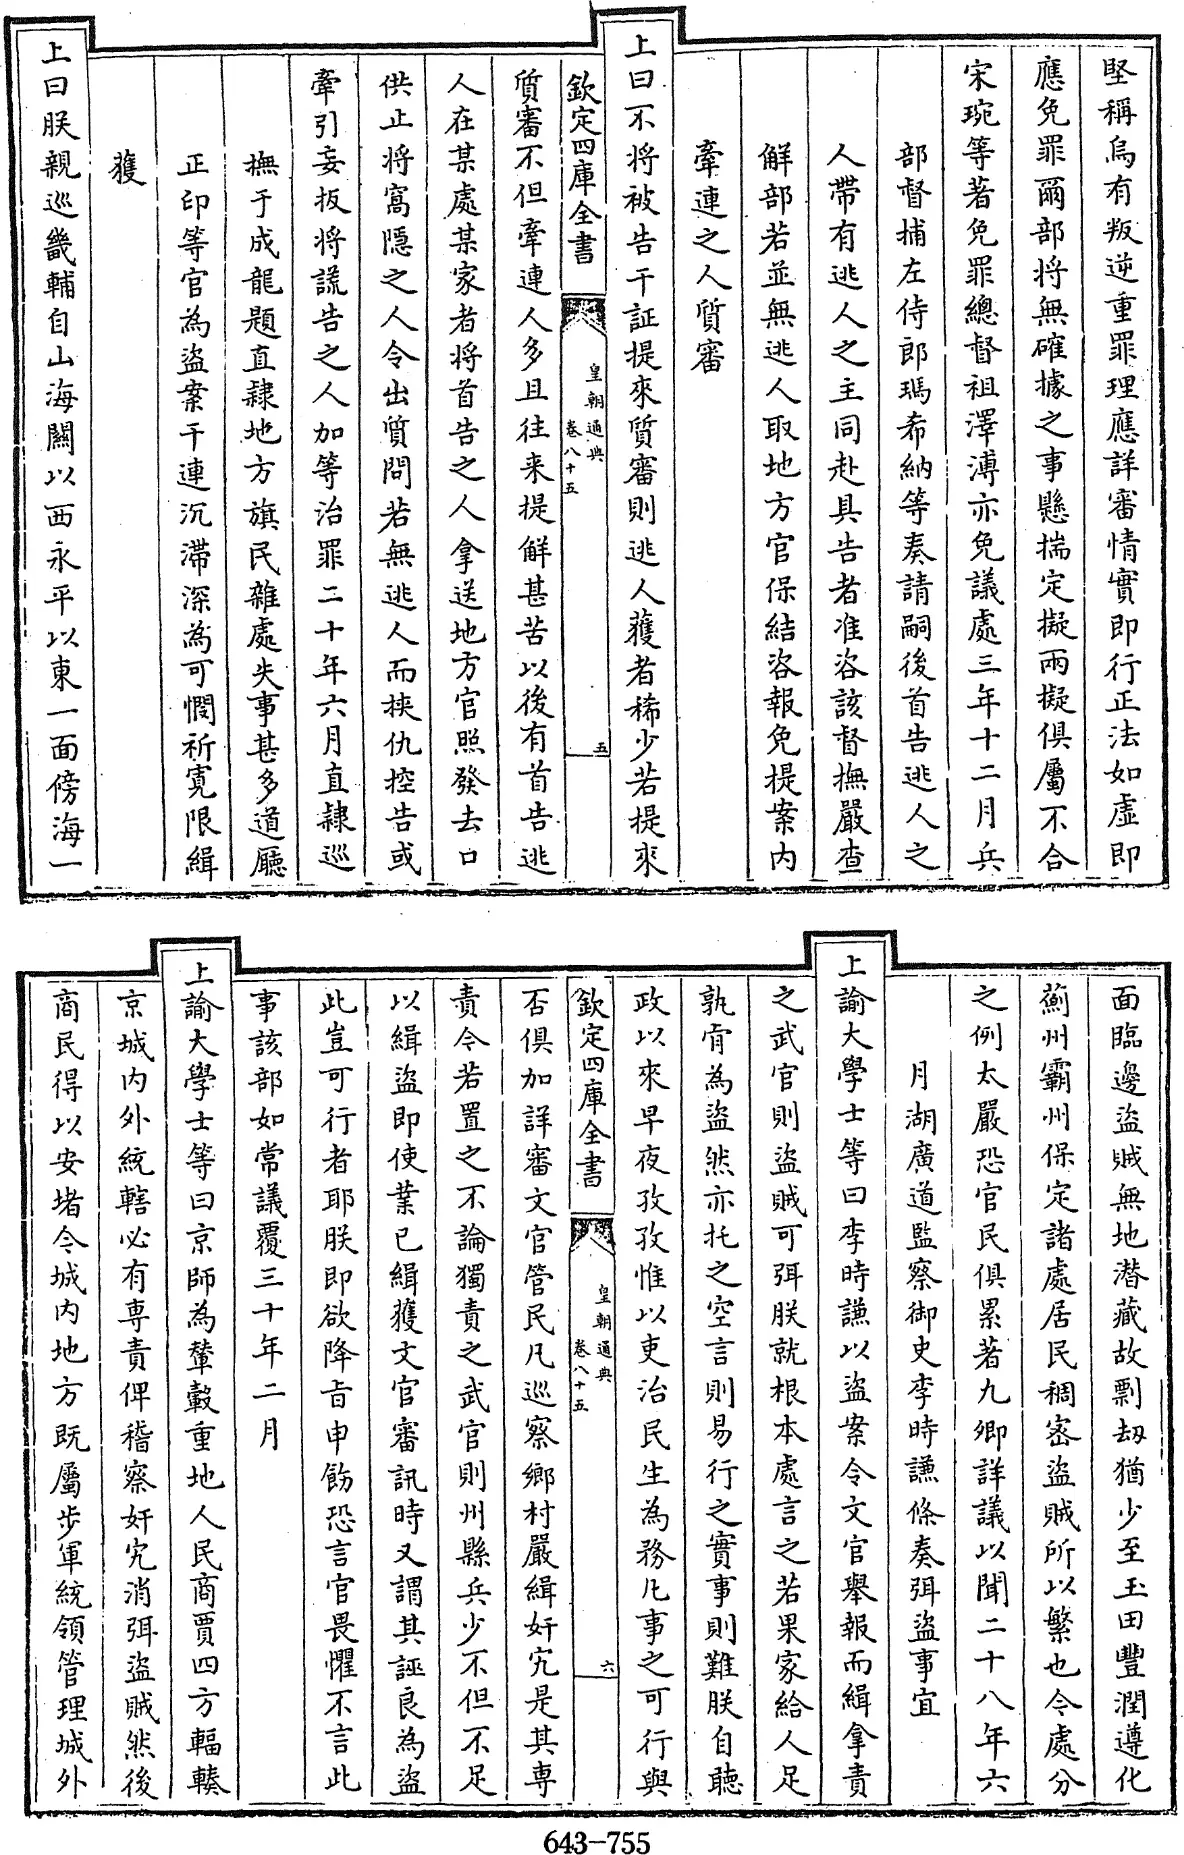 堅稱烏有叛逆重罪理應詳審情實即行正法如虛即
應免罪爾部將無確據之事懸揣定擬兩擬俱屬不合
宋琬等著免罪總督祖澤溥亦免議處三年十二月兵
部督捕左侍郎瑪希納等奏請嗣後首告逃人之
人帶有逃人之主同赴具告者准咨該督撫嚴查
解部若並無逃人取地方官保結咨報免提案內
牽連之人質審
上曰不將被告干証提來質審則逃人獲者稀少若提來
欽定四庫全書
皇朝通典
卷八十五
五
質審不但牽連人多且往來提解甚苦以後有首告逃
人在某處某家者將首告之人拿送地方官照發去口
供止將窩隱之人令出質問若無逃人而挾仇控告或
牽引妄扳將謊告之人加等治罪二十年六月直隸巡
撫于成龍題直隸地方旗民雜處失事甚多道廳
正印等官為盜案干連沉滯深為可憫祈寬限緝
獲
上曰朕親巡畿輔自山海關以西永平以東一面傍海一
面臨邊盜賊無地潛藏故剽劫猶少至玉田豐潤遵化
薊州霸州保定諸處居民稠密盜賊所以繁也令處分
之例太嚴恐官民俱累著九卿詳議以聞二十八年六
月湖廣道監察御史李時謙條奏弭盜事宜
上諭大學士等曰李時謙以盜案令文官舉報而緝拿責
之武官則盜賊可弭朕就根本處言之若果家給人足
孰肯為盜然亦托之空言則易行之實事則難朕自聽
政以來早夜孜孜惟以吏治民生為務凡事之可行與
欽定四庫全書
皇朝通典
卷八十五
六
否俱加詳審文官管民凡巡察鄉村嚴緝奸宄是其專
責令若置之不論獨責之武官則州縣兵少不但不足
以緝盜即使業已緝獲文官審訊時又謂其誣良為盜
此豈可行者耶朕即欲降旨申飭恐言官畏懼不言此
事該部如常議覆三十年二月
上諭大學士等曰京師為輦轂重地人民商賈四方輻輳
京城內外統轄必有專責俾稽察奸宄消弭盜賊然後
商民得以安堵令城內地方既屬步軍統領管理城外
643-755